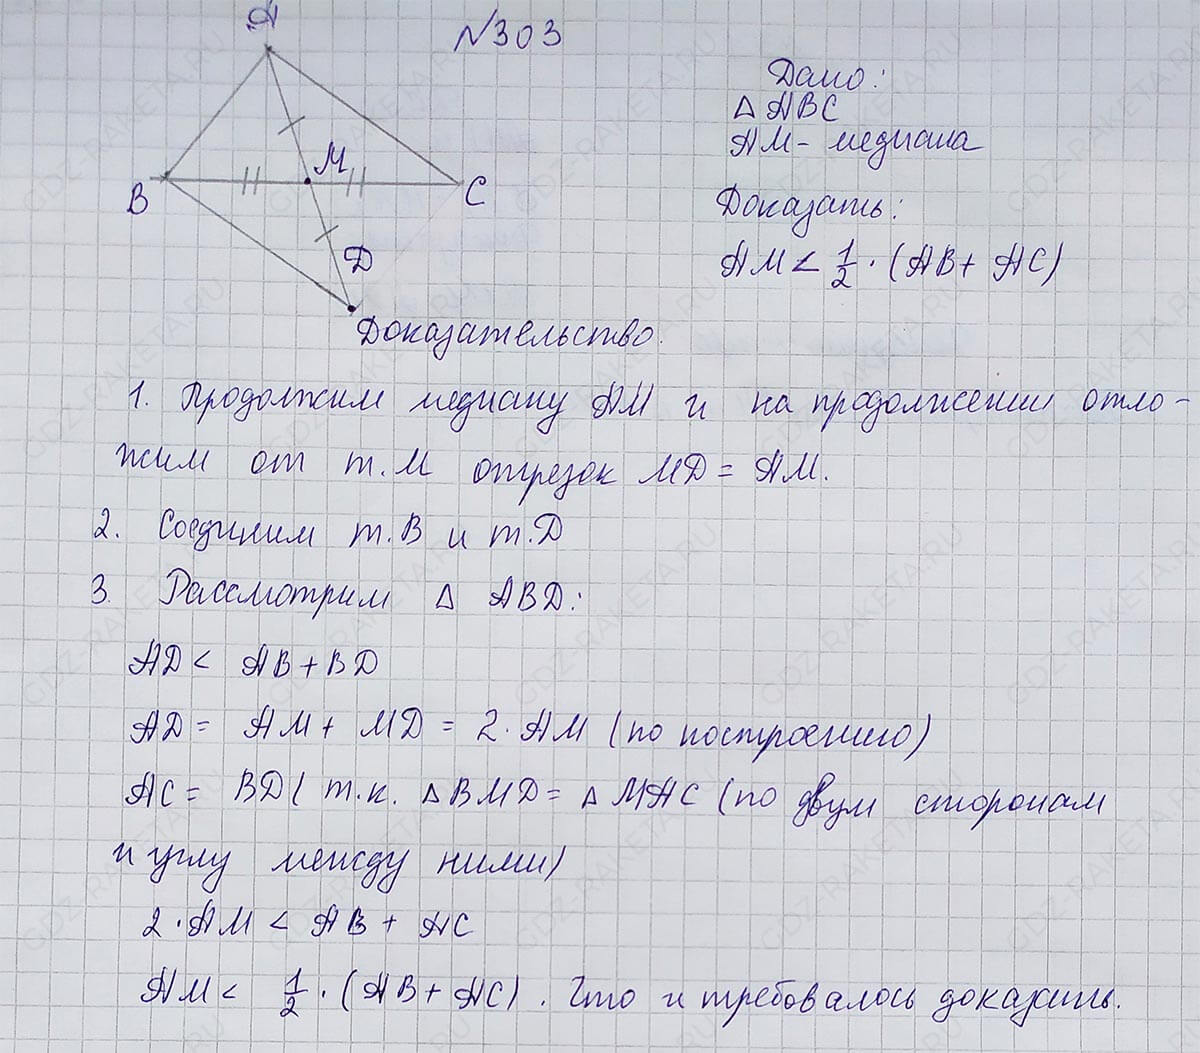 №303
A
B
M
C
D
Дано:
△ ABC
AM - медиана
Доказать:
AM < 1/2 · (AB + AC)
Доказательство.
1. Продолжим медиану AM и на продолжении отло-
жим от т. M отрезок MD = AM.
2. Соединим т. B и т. D
3. Рассмотрим △ ABD:
AD < AB + BD
AD = AM + MD = 2 · AM (по построению)
AC = BD ( т.к. △BMD = △ MAC (по двум сторонам
и углу между ними)
2 · AM < AB + AC
AM < 1/2 · (AB + AC). Что и требовалось доказать.
GDZ-RAKETA.RU